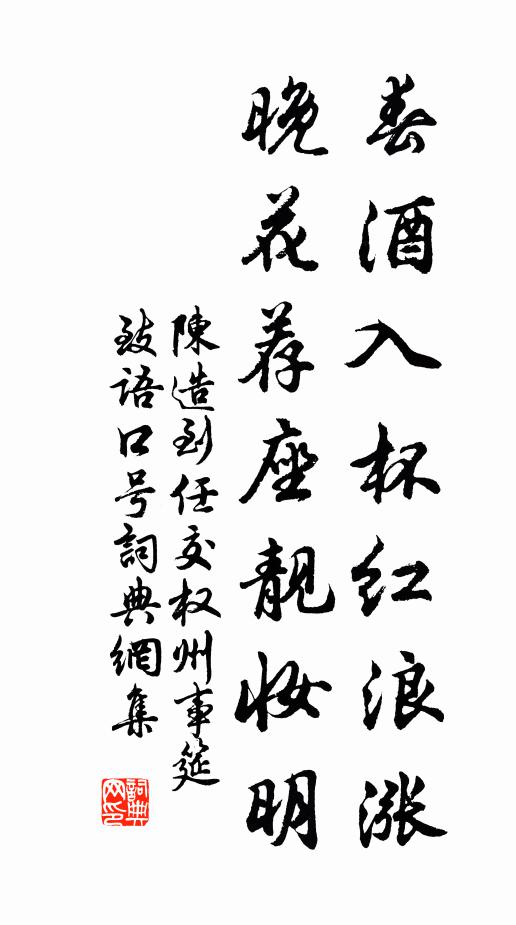 春酒入杯红浪涨
晚花荐座靓妆明
陳造到任交权州事筵
致语口号詞典網集
詞典网印